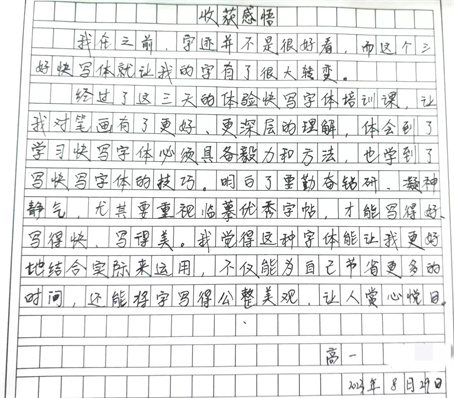 收获感悟
我在之前,字迹并不是很好看,而这个三
好快写体就让我的字有了很大转变。
经过了这三天的体验快写字体培训课,让
我对笔画有了更好、更深层的理解,体会到了
学习快写字体必须具备毅力和方法,也学到了
写快写字体的技巧。明白了要勤奋钻研、凝神
静气,尤其要重视临摹优秀字帖,才能写得好、
写得快、写得美。我觉得这种字体能让我更好
地结合实际来运用,不仅能为自己节省更多的
时间,还能将字写得公整美观,让人赏心悦目。
高一
年8月29日